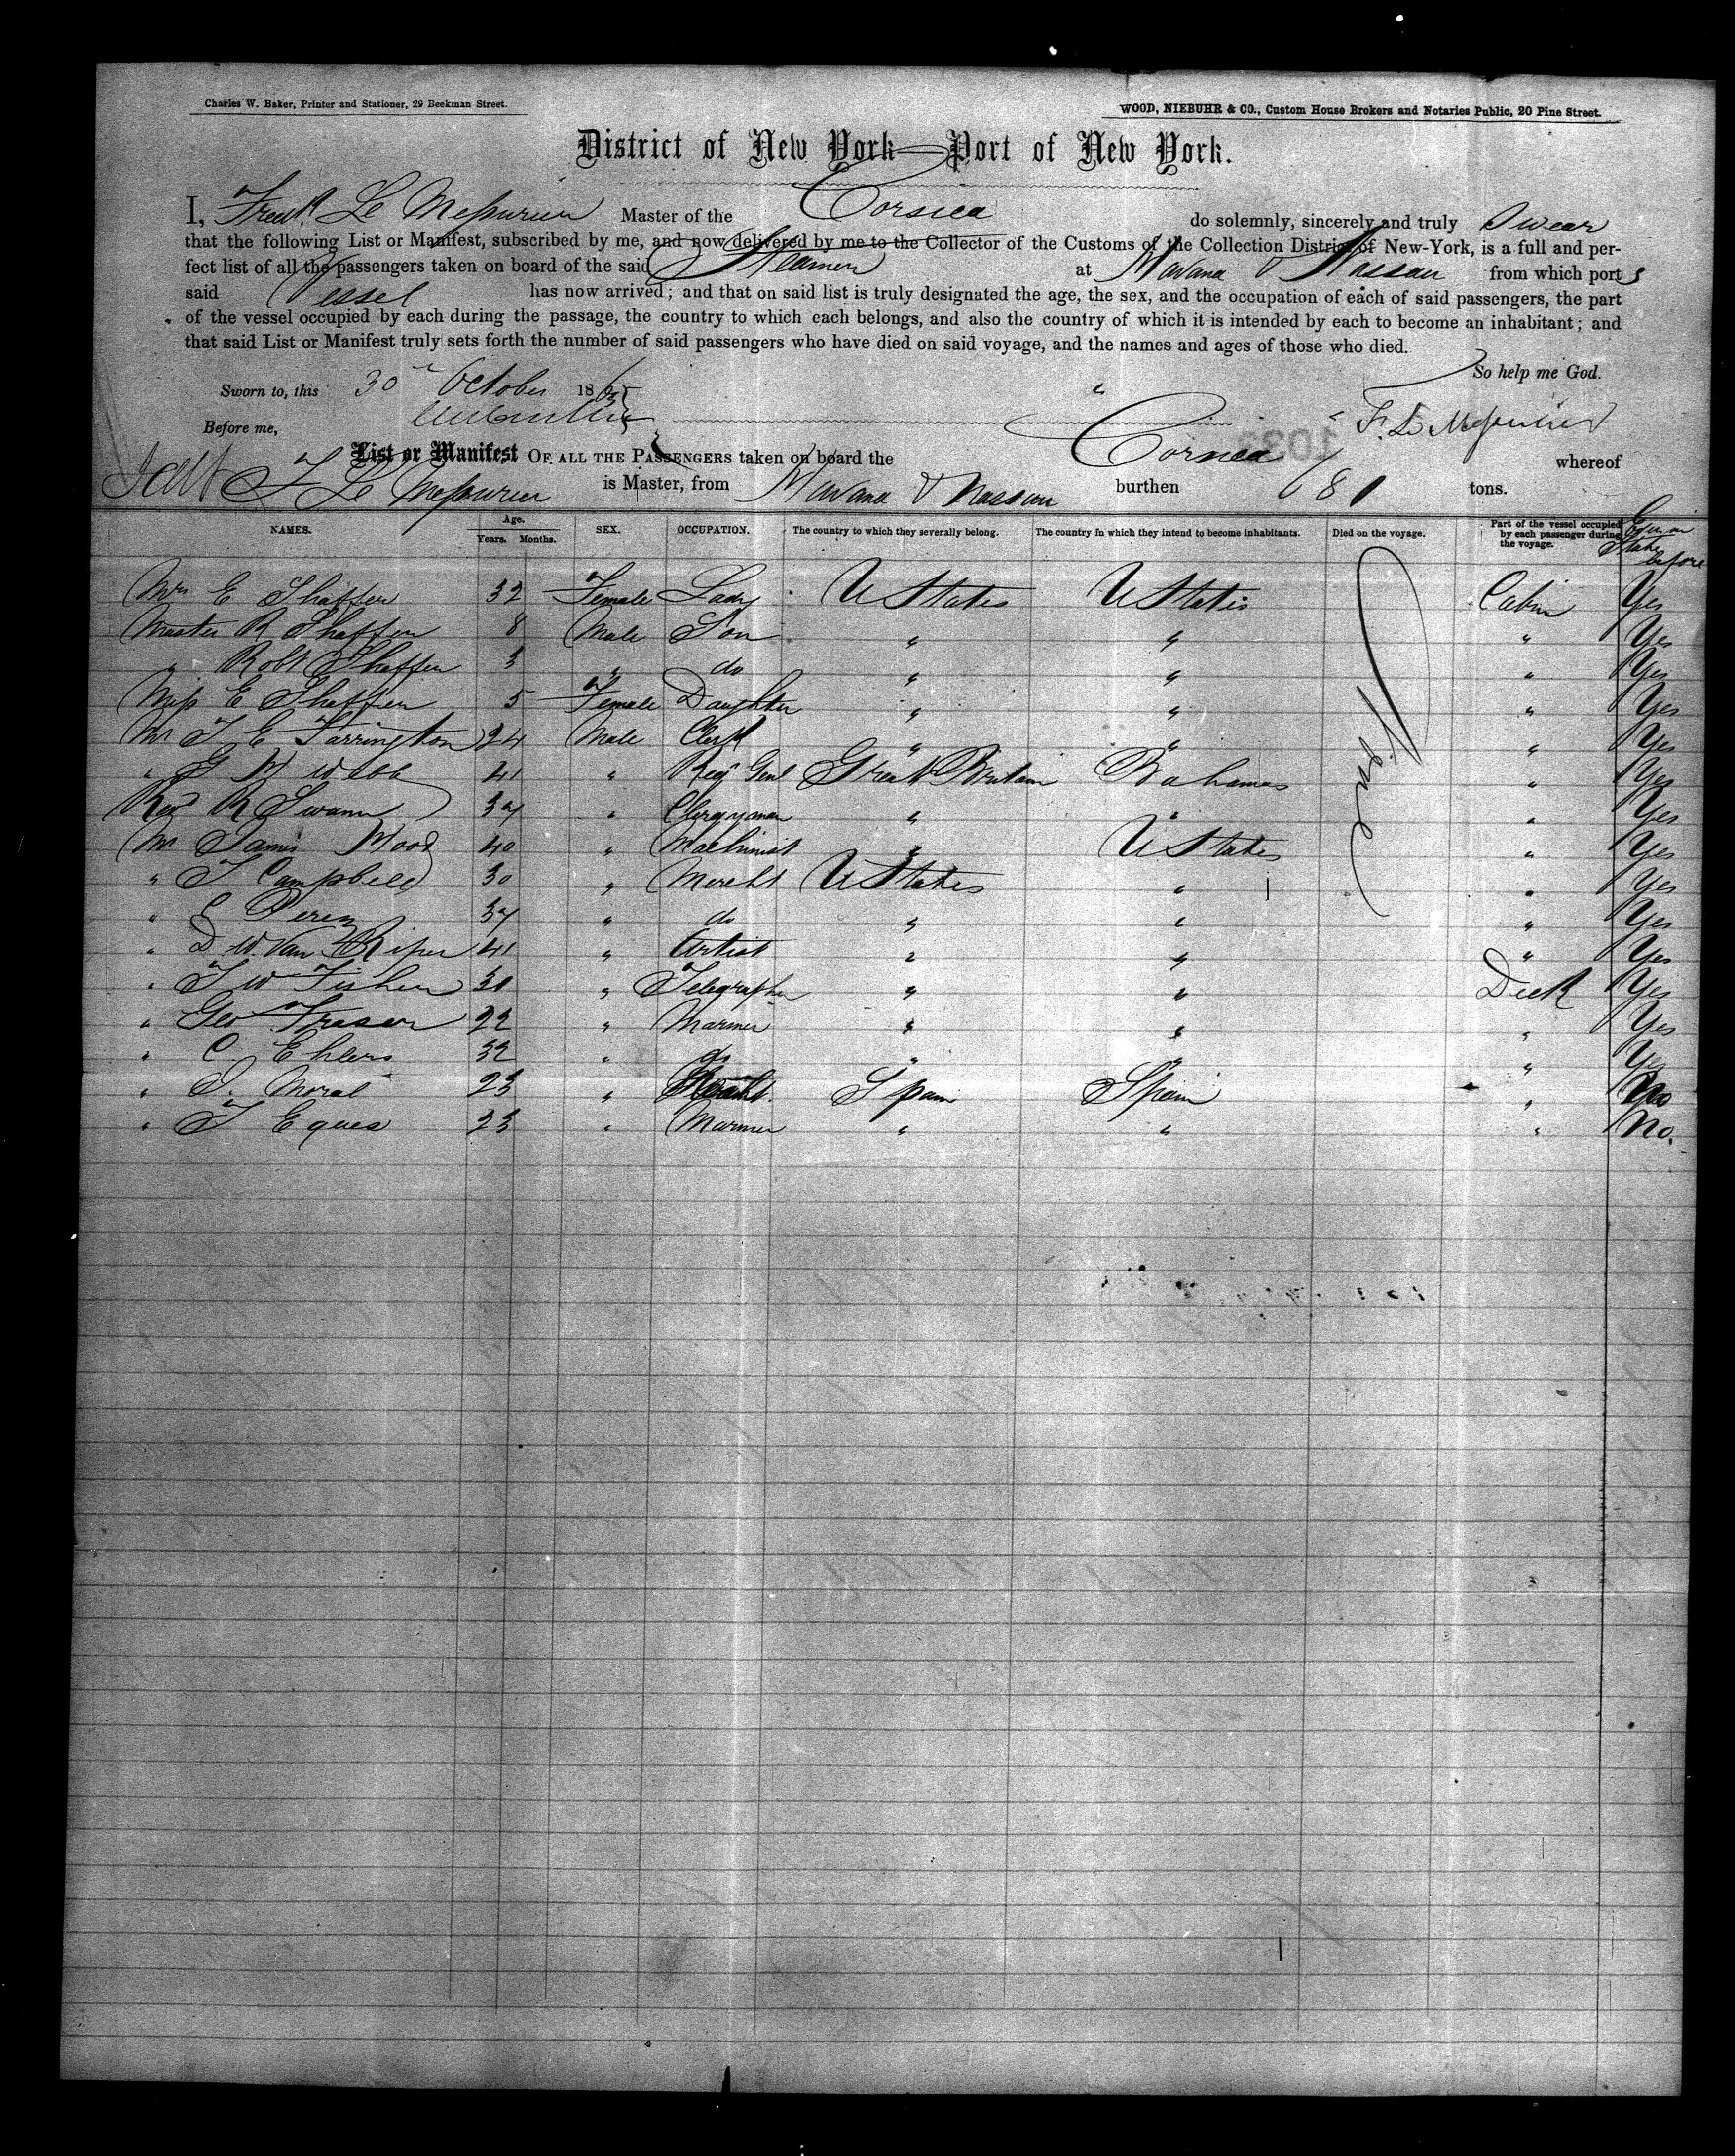 Charles W. Baker, Printer and Stationer, 29 Beekman Street.
WOOD, NIEBUHR & CO., Custom House Brokers and Notaries Public, 20 Pine Street.
District of New York—Port of New York.
I, Fredk Le Messurier Master of the Corsica do solemnly, sincerely and truly Swear
that the following List or Manifest, subscribed by me, and now delivered by me to the Collector of the Customs of the Collection District of New-York, is a full and per-
fect list of all the passengers taken on board of the said Steamer at Havana & Nassau from which ports
said Vessel has now arrived; and that on said list is truly designated the age, the sex, and the occupation of each of said passengers, the part
of the vessel occupied by each during the passage, the country to which each belongs, and also the country of which it is intended by each to become an inhabitant; and
that said List or Manifest truly sets forth the number of said passengers who have died on said voyage, and the names and ages of those who died.
So help me God.
Sworn to, this 30 October 1865
Before me, F. Le Messurier
List or Manifest OF ALL THE PASSENGERS taken on board the Corsica whereof
F Le Messurier is Master, from Havana & Nassau burthen tons.
NAMES. Age. Years. Months. SEX. OCCUPATION. The country to which they severally belong. The country in which they intend to become inhabitants. Died on the voyage. Part of the vessel occupied by each passenger during the voyage. before
Mrs E Shaffer 32 Female Lady U States U States Cabin Yes
Master R Shaffer 8 Male Son " " " Yes
" Robt Shaffer 3 " do " " " Yes
Miss E Shaffer 5 Female Daughter " " " Yes
Mr T E Farrington 24 Male Clerk " " " Yes
" G W Webb 41 " Reg Genl Great Britain Bahamas " Yes
Revd R Swann 37 " Clergyman " " " Yes
Mr James Wood 40 " Machinist " U States " Yes
" T Campbell 30 " Mercht U States " " Yes
" Perez 37 " do " " " Yes
" D W. Van Riper 41 " Artist " " " Yes
" T W Fisher 30 " Telegrapher " " Deck Yes
" Geo Fraser 22 " Mariner " " " Yes
" C. Ehlers 32 " do " " " Yes
" Moral 23 " Spain Spain " No
" T Eques 23 " Mariner " " " No.
None